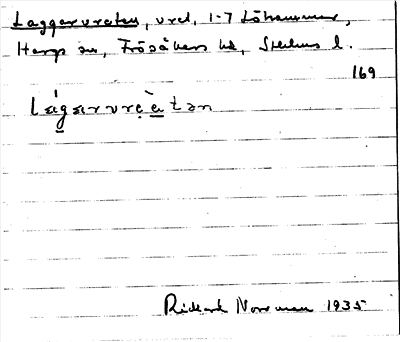 Laggarvreten, vret, 1-7 Löhammar,
Hargs sn, Frösåkers hd, Sthlms l.
169
lág̱ar vrè̱a̱tən
Rickard Norrman 1935